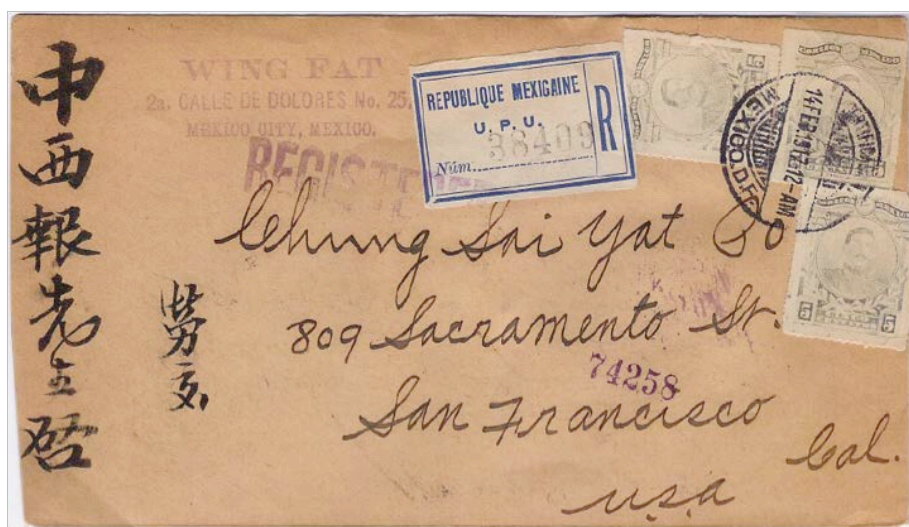 中西報先生啓
勞交
WING FAT
2a. CALLE DE DOLORES No. 25,
MEXICO CITY, MEXICO.
REGISTERED
REPUBLIQUE MEXICAINE
U. P. U.
38409
Núm.
R
MEXICO, D.F.
12-AM
Chung Sai Yat Po
809 Sacramento St.
74258
San Francisco
Cal.
U.S.A